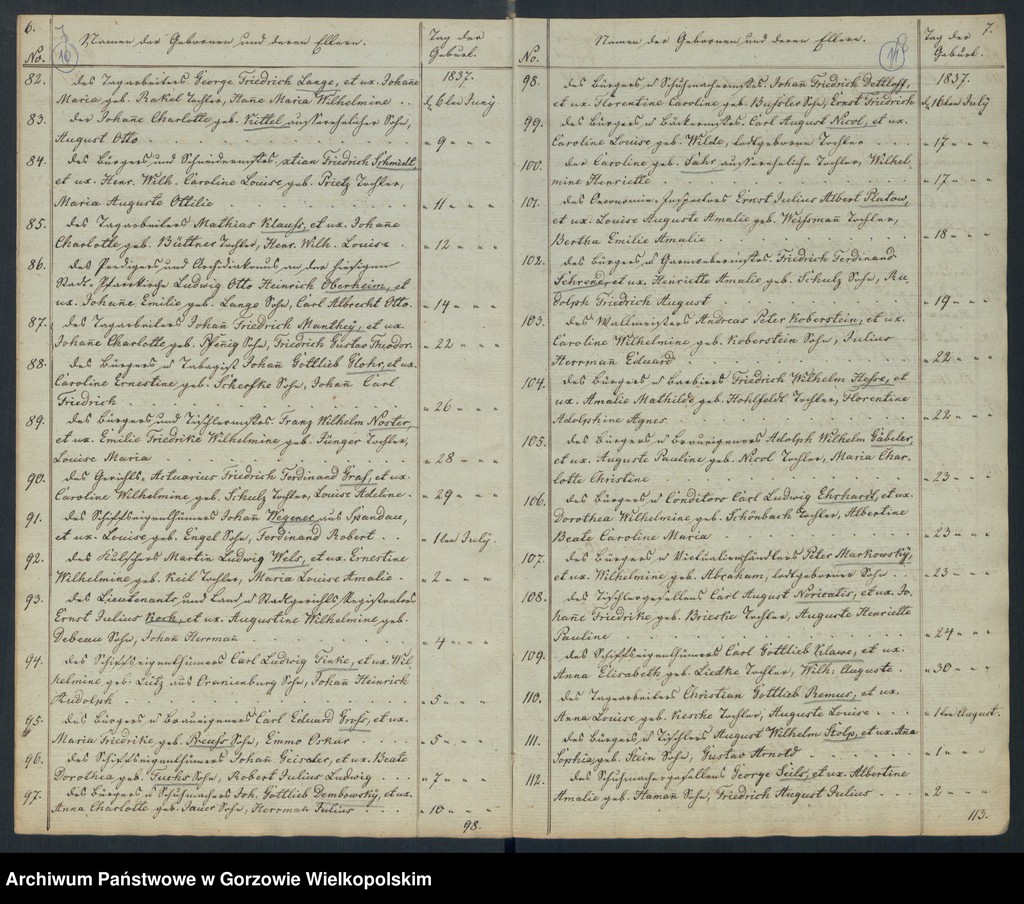 6.
16
No.
Namen der Gebornen und deren Eltern.
Tag der
Geburt.
1837.
82. des Tagarbeiters George Friedrich Lange, et ux. Johañe
Maria geb. Rakel Tochter, Hane Maria Wilhelmine . . d. 6ten Juny
83. der Johañe Charlotte geb. Kittel außerehelicher Sohn,
August Otto . . . " 9 " " "
84. des Bürgers und Schneidermstrs. Xtian Friedrich Schmidt,
et ux. Henr. Wilh. Caroline Louise geb. Prietz Tochter,
Maria Auguste Ottilie . . . " 11 " " "
85. des Tagarbeiters Mathias Klauss, et ux. Johañe
Charlotte geb. Büttner Tochter, Henr. Wilh. Louise . " 12 " " "
86. des Predigers und Archidiakonus an der hiesigen
Stadt-Pfarrkirche Ludwig Otto Heinrich Oberheim, et
ux. Johañe Emilie geb. Lange Sohn, Carl Albrecht Otto. " 14 " " "
87. des Tagarbeiters Johañ Friedrich Manthey, et ux.
Johañe Charlotte geb. Pfeñig Sohn, Friedrich Gustav Theodor. " 22 " " "
88. des Bürgers u Tabagist Johañ Gottlieb Flohr, et ux.
Caroline Ernestine geb. Scherfke Sohn, Johañ Carl
Friedrich . . . " 26 " " "
89. des Bürgers und Tischlermstrs. Franz Wilhelm Noster,
et ux. Emilie Friedrike Wilhelmine geb. Jünger Tochter,
Louise Maria . . . " 28 " " "
90. des Gerichts-Actuarius Friedrich Ferdinand Graf, et ux.
Caroline Wilhelmine geb. Schulz Tochter, Louise Adeline . " 29 " " "
91. des Schiffseigenthümers Johañ Wegener aus Spandau,
et ux. Louise geb. Engel Sohn, Ferdinand Robert . . " 1ten July.
92. des Kutschers Martin Ludwig Wels, et ux. Ernestine
Wilhelmine geb. Keil Tochter, Maria Louise Amalie . " 2 " " "
93. des Lieutenants und Land u Stadtgerichts Registrators
Ernst Julius Koch, et ux. Augustine Wilhelmine geb.
Debeau Sohn, Johañ Herrman . . . " 4 " " "
94. des Schiffseigenthümers Carl Ludwig Finke, et ux. Wil-
helmine geb. Lütz aus Oranienburg Sohn, Johañ Heinrich
Rudolph . . . " 5 " " "
95. des Bürgers u Braueigeners Carl Eduard Gross, et ux.
Maria Friedrike geb. Preuss Sohn, Emmo Oskar . . " 5 " " "
96. des Schiffseigenthümers Johañ Geisder, et ux. Beate
Dorothea geb. Fuchs Sohn, Robert Julius Ludwig . . " 7 " " "
97. des Bürgers u Schuhmachers Joh. Gottlieb Dembowsky, et ux.
Anna Charlotte geb. Sauer Sohn, Herrman Julius . . . " 10 " " "
98.
7.
No.
Namen der Gebornen und deren Eltern.
Tag der
Geburt.
1837.
98. des Bürgers u Schuhmachermstrs. Johañ Friedrich Dettloff,
et ux. Florentine Caroline geb. Bussler Sohn, Ernst Friedrich d. 16ten July
99. des Bürgers u Bäckermstrs. Carl August Nicol, et ux.
Caroline Louise geb. Wilde, todtgeborene Tochter . . " 17 " " "
100. der Caroline geb. Sähr außereheliche Tochter, Wilhel-
mine Henriette . . . " 17 " " "
101. des Oeconomie-Inspectors Ernst Julius Albert Platow,
et ux. Louise Auguste Amalie geb. Weissmañ Tochter,
Bertha Emilie Amalie . . . " 18 " " "
102. des Bürgers u Garnwebermstrs Friedrich Ferdinand
Schrener, et ux. Henriette Amalie geb. Schulz Sohn, Ru-
dolph Friedrich August . . . " 19 " " "
103. des Wallmeisters Andreas Peter Koberstein, et ux.
Caroline Wilhelmine geb. Koberstein Sohn, Julius
Herrman Eduard . . . " 22 " " "
104. des Bürgers u Barbiers Friedrich Wilhelm Hesse, et
ux. Amalie Mathilde geb. Hohlfeldt Tochter, Florentine
Adolphine Agnes . . . " 22 " " "
105. des Bürgers u Braueigeners Adolph Wilhelm Gäbeler,
et ux. Auguste Pauline geb. Nicol Tochter, Maria Char-
lotte Christine . . . " 23 " " "
106. des Bürgers u Conditors Carl Ludwig Ehrhardt, et ux.
Dorothea Wilhelmine geb. Schönbach Tochter, Albertine
Beate Caroline Maria . . . " 23 " " "
107. des Bürgers u Victualienhändlers Peter Markowsky,
et ux. Wilhelmine geb. Abraham, todtgeborner Sohn . . " 23 " " "
108. des Tischlergesellens Carl August Noricatis, et ux. Jo-
hañe Friedrike geb. Brieske Tochter, Auguste Henriette
Pauline . . . " 24 " " "
109. des Schiffseigenthümers Carl Gottlieb Eilawe, et ux.
Anna Elisabeth geb. Liedke Tochter, Wilh: Auguste . . " 30 " " "
110. des Tagearbeiters Christian Gottlieb Remus, et ux.
Anna Louise geb. Kieschke Tochter, Auguste Louise . . " 1ten August.
111. des Bürgers u Tischlers August Wilhelm Stolp, et ux. Aña
Sophie geb. Hein Sohn, Gustav Arnold . . . " 1 " " "
112. des Schuhmachergesellens George Seils, et ux. Albertine
Amalie geb. Hamañ Sohn, Friedrich August Julius . . . " 2 " " "
113.
Archiwum Państwowe w Gorzowie Wielkopolskim